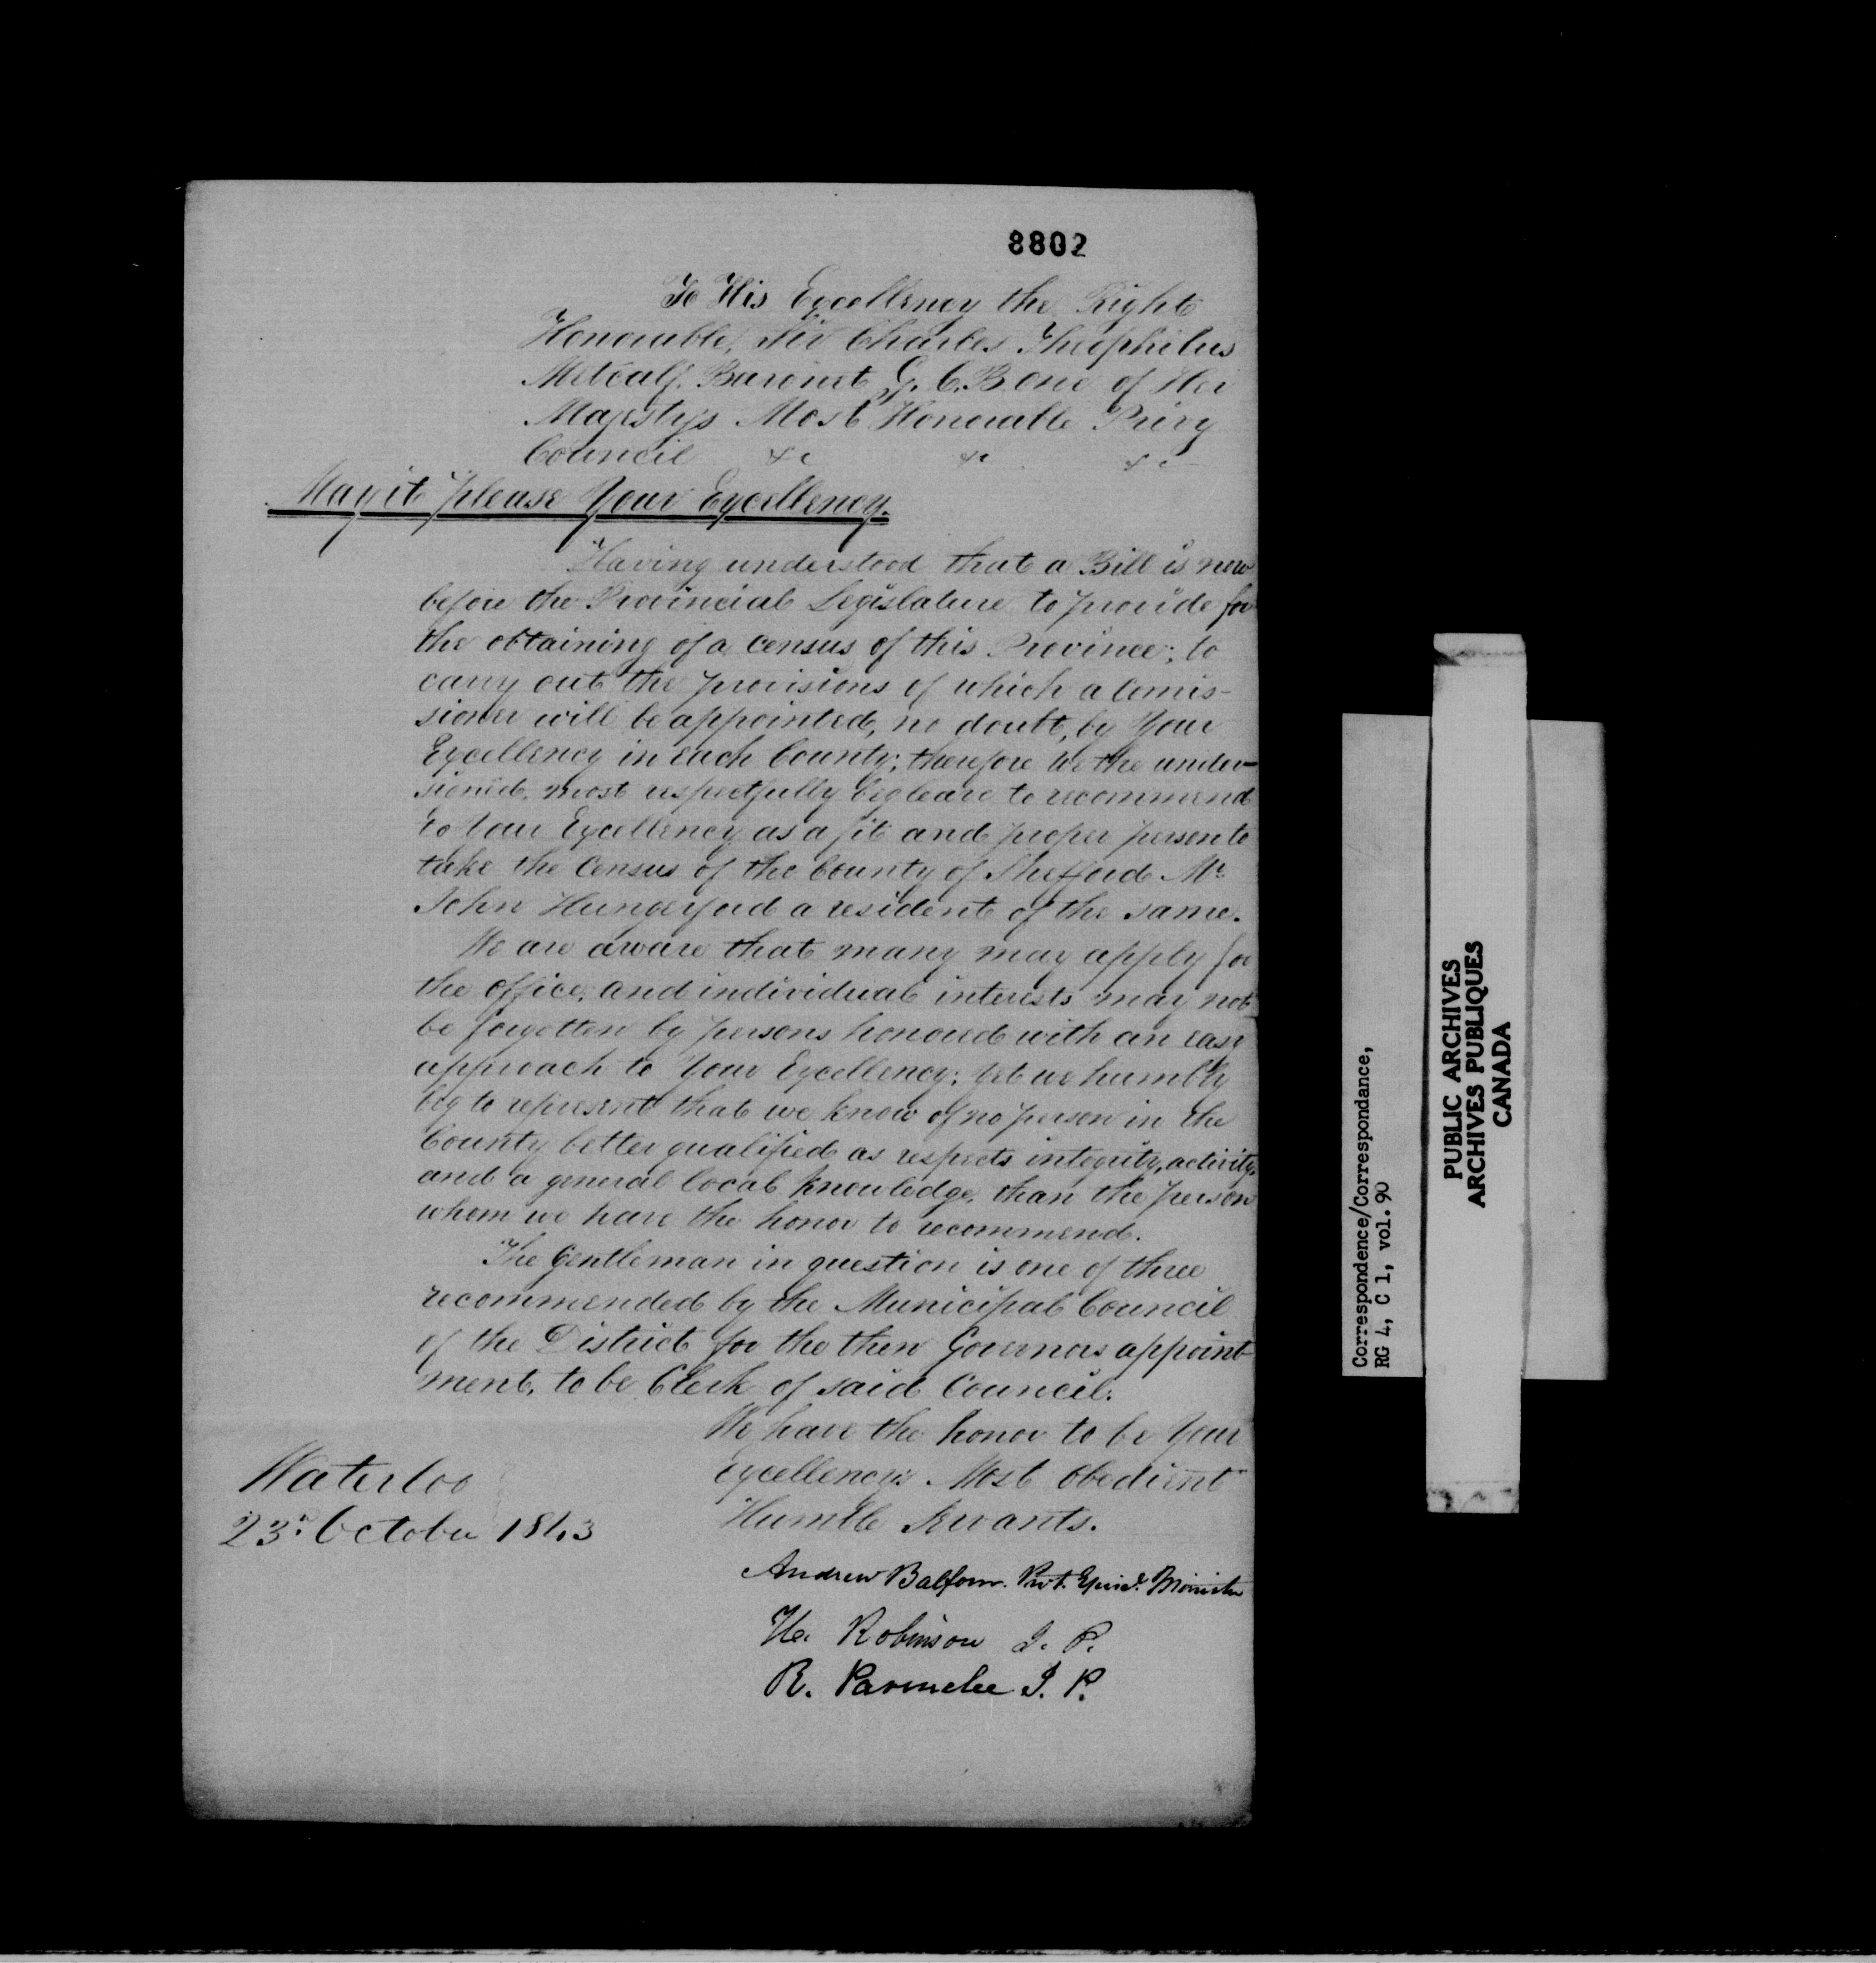 8802
To His Excellency the Right
Honourable, Sir Charles Theophilus
Metcalf. Baronet G. C. B. One of Her
Majesty's Most Honourable Privy
Council &c &c &c
May it please Your Excellency.
Having understood that a Bill is now
before the Provincial Legislature to provide for
the obtaining of a census of this Province; to
carry out the provisions of which a Comis-
sioner will be appointed, no doubt, by Your
Excellency in each County; therefore We the under-
signed, most respectfully beg leave to recommend
to Your Excellency as a fit and proper person to
take the Census of the County of Shefford Mr.
John Hungerford a resident of the same.
We are aware that many may apply for
the office, and individual interests may not
be forgotten by persons honoured with an easy
approach to Your Excellency; yet we humbly
beg to represent that we know of no person in the
County better qualified as respects integrity, activity,
and a general local knowledge, than the person
whom we have the honor to recommend.
The Gentleman in question is one of three
recommended by the Municipal Council
of the District for the then Governors appoint-
ment, to be Clerk of said Council.
We have the honor to be Your
Excellency's Most Obedient
Humble Servants.
Waterloo
23d. October 1843
Andrew Balfour. Prot. Episcl. Minister
H. Robinson J. P.
R. Parmelee J. P.
Correspondence/Correspondance,
RG 4, C 1, vol. 90
PUBLIC ARCHIVES
ARCHIVES PUBLIQUES
CANADA